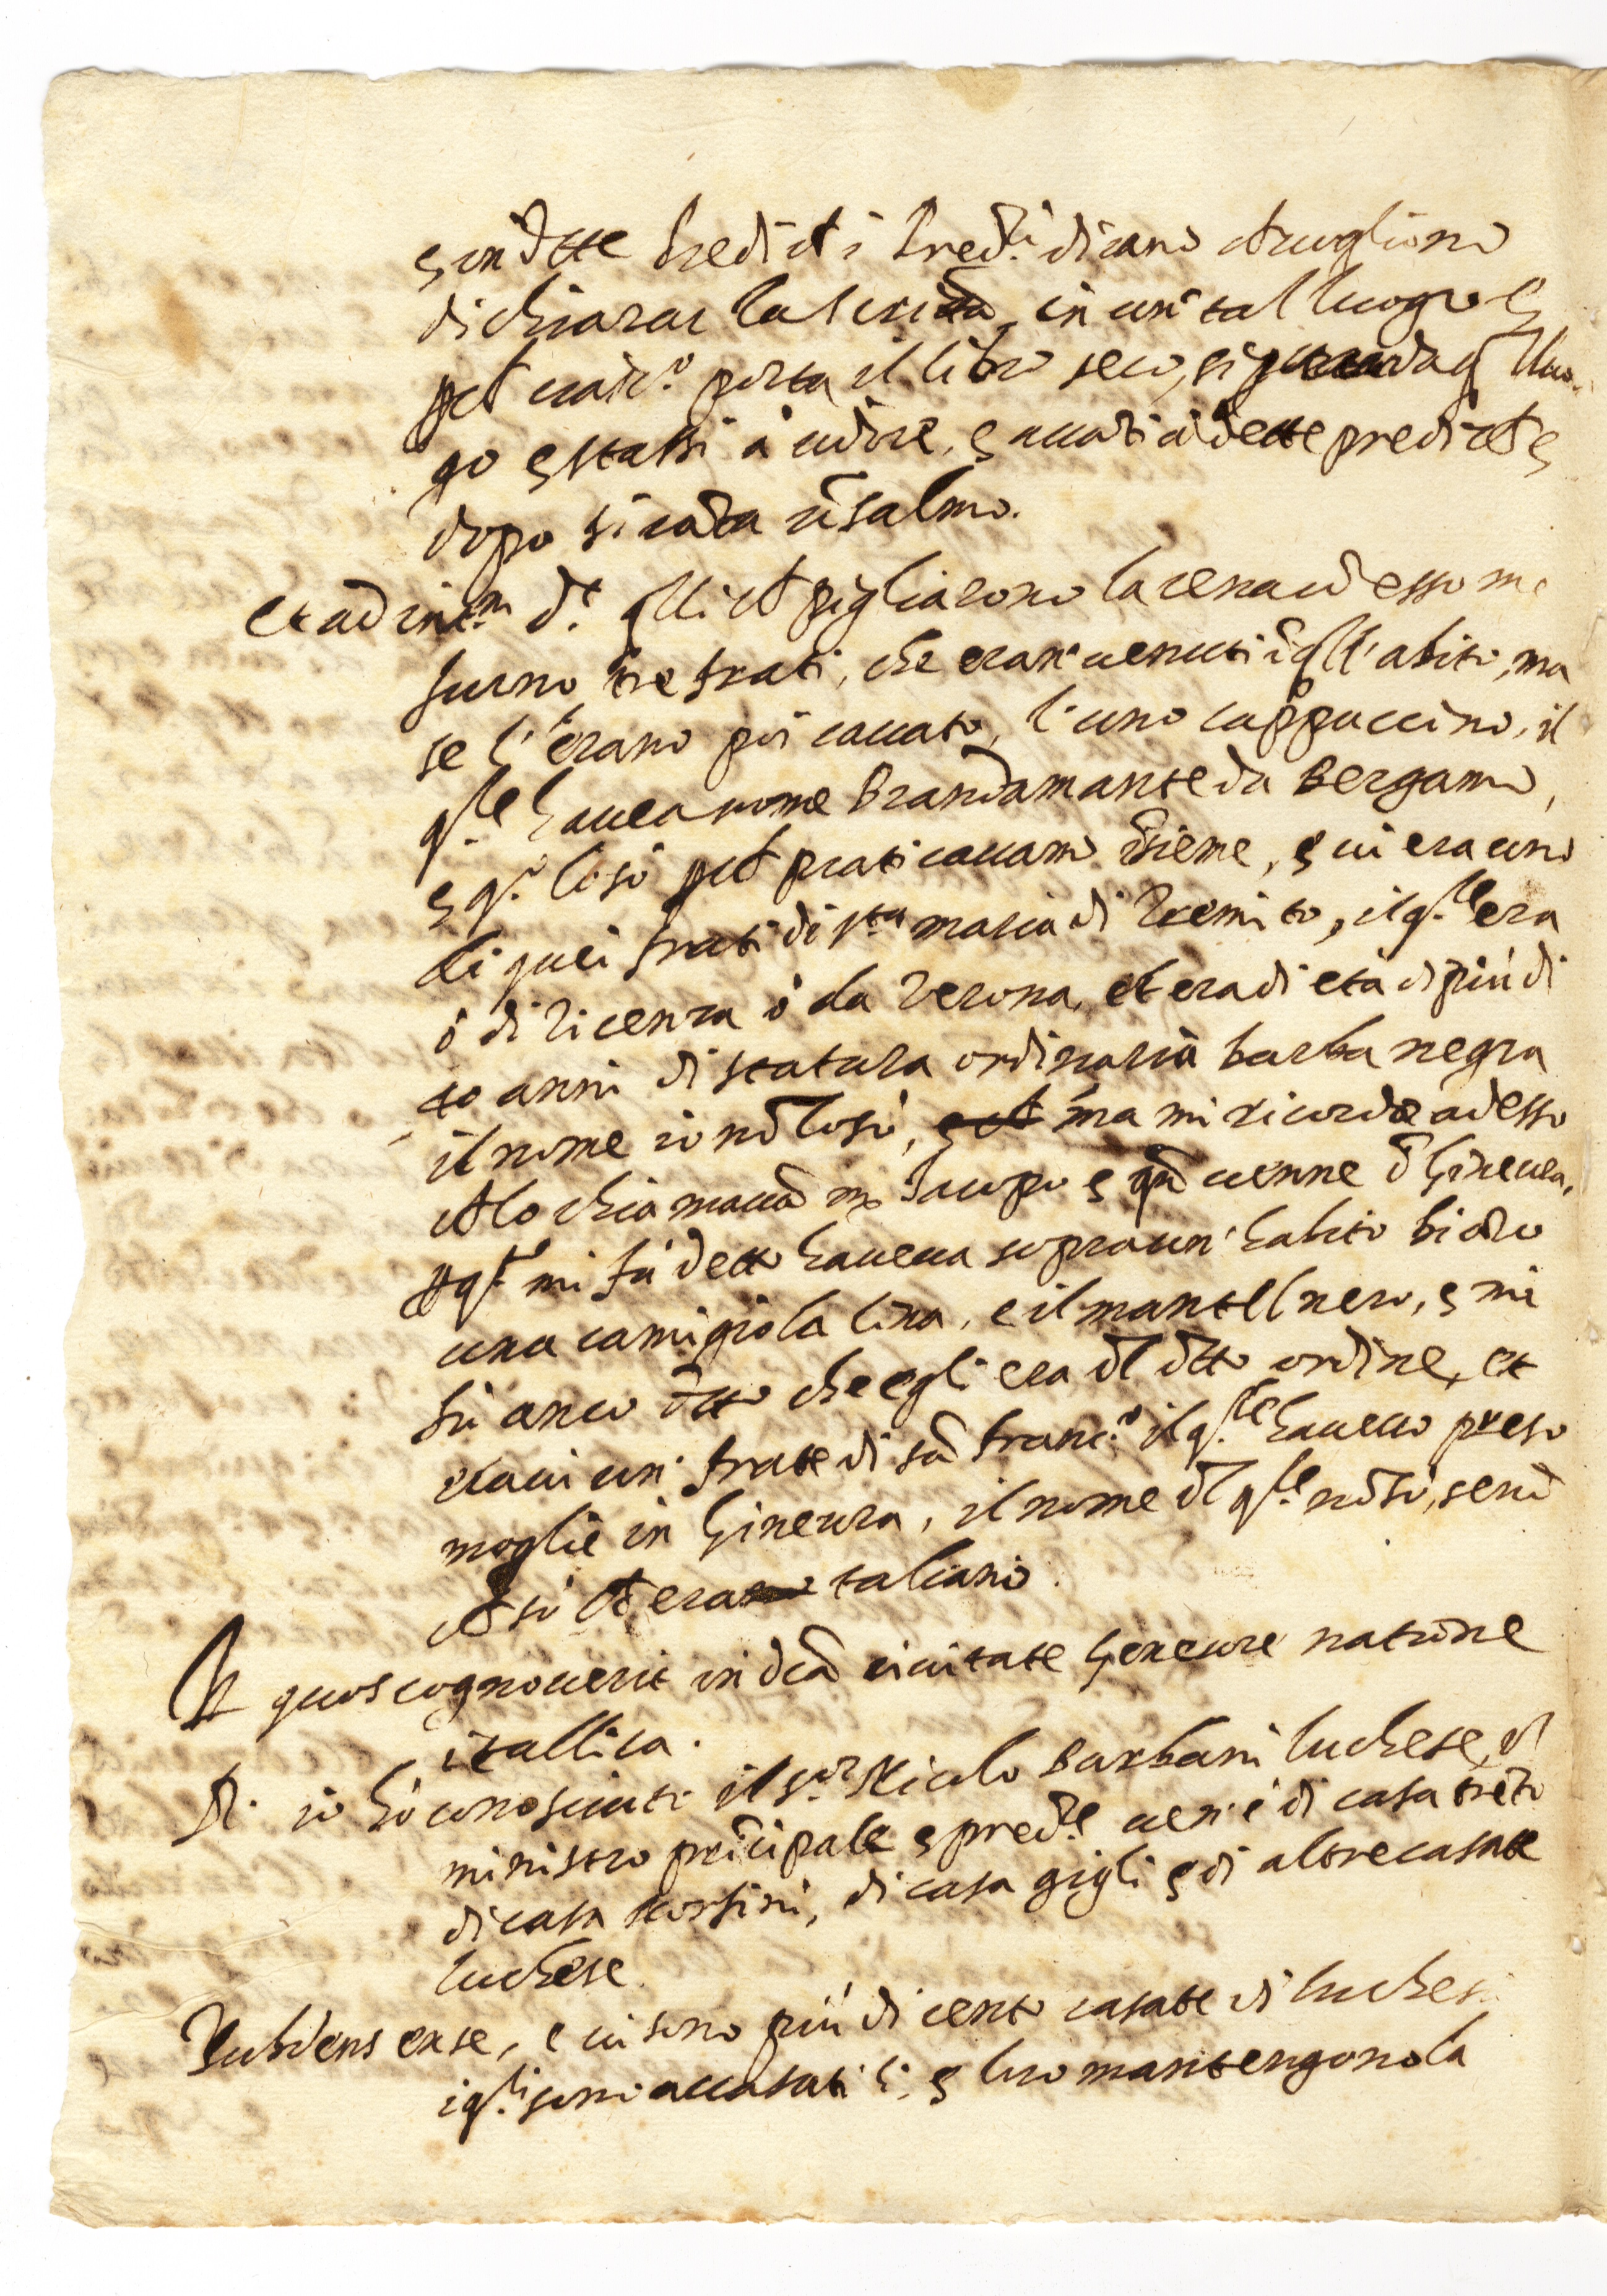 e in dette prediche i pred.ri dicano che vogliono
dichiarar la scrittura in un tal luogo e
perché ciasc.o porta il libro seco, si guarda q.l luo
go e stassi à udire, e avanti à dette prediche e
dopo si canta un salmo.
Et ad int.m d.t quelli che pigliarono la cena con esso me
furno tre frati, che eran' venuti in quell'abito, ma
se l'erano poi cavato, l'uno cappuccino, il
q.le haveva nome Brandamante da Bergamo,
e q.o lo so perché praticavamo insieme, e vi era uno
di quei frati di s.ta maria di , il q.le era
ò di vicenza ò da Verona, et era di età di più di
40 anni di statura ordinaria barba negra
il nome io non lo so, ma mi ricordo adesso
che lo chiamavan m. Jacopo e quando venne in Ginevra,
per q.to mi fu detto haveva sopra un' habito bianco
una camigiola lina, e il mantel nero, e mi
fù anco detto che egli era del detto ordine, et
eravi un' frate di san Franc.o il q.le haveva preso
moglie in Ginevra, il nome del q.le non so, se non
che so che era taliano.
Int quos cognoverit in dicta civitate Geneure natione
itallica.
R. io hò conosciuti il s.or Nicolo Barbani luchese, il
ministro principale e pred.re ven'è di casa
di casa , di casa gigli e di altre casate
luchese.
Subdens ex se, e vi sono più di cento casate di luchesi
i q.li sono accasati lì, e loro mantengono la